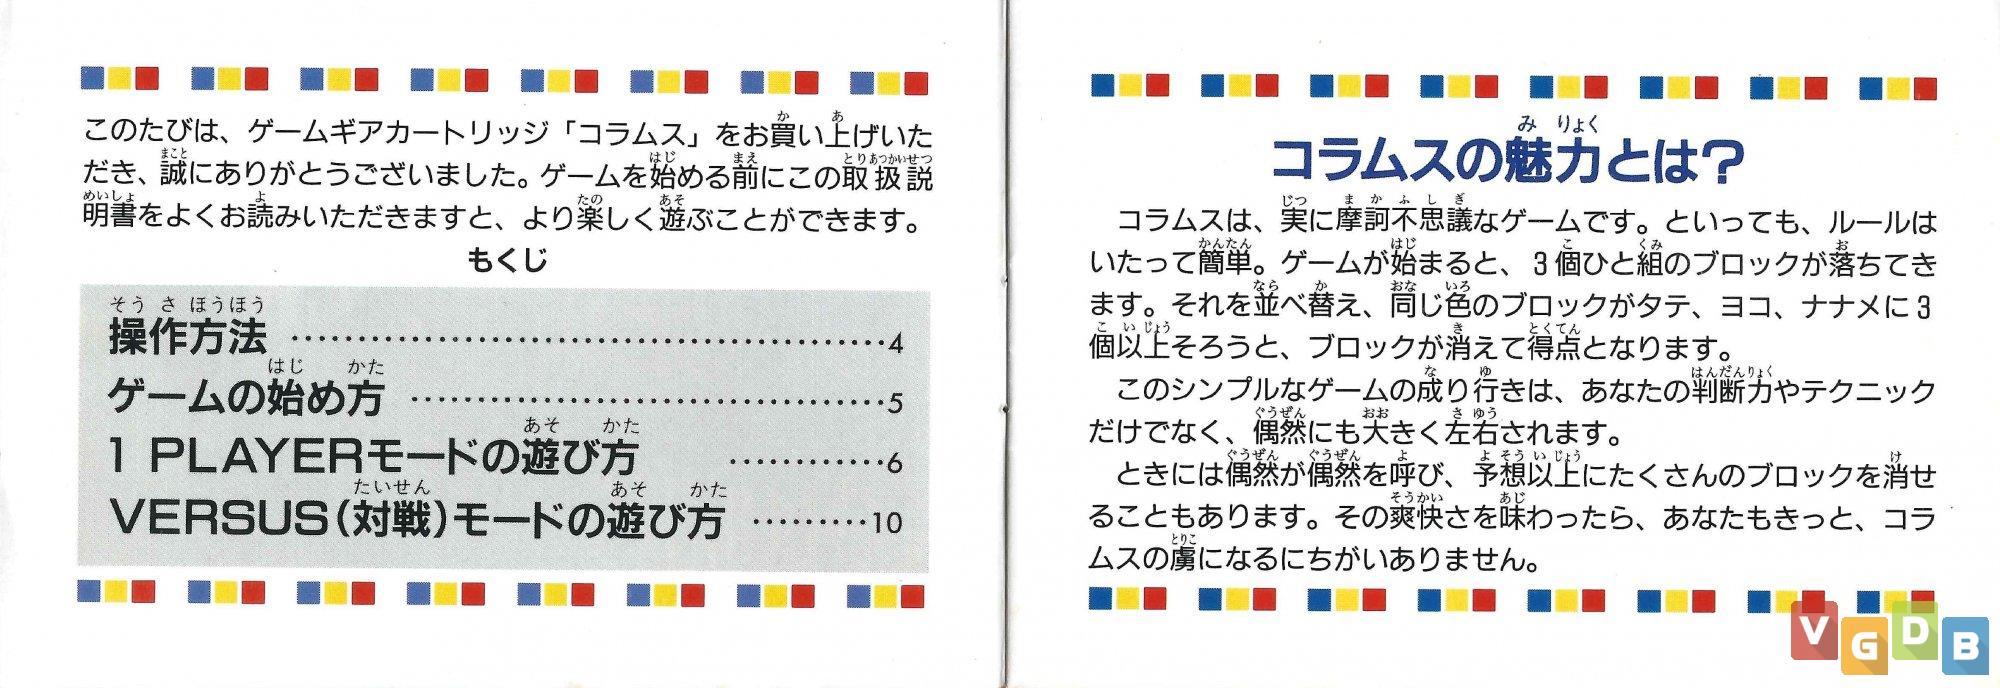 このたびは、ゲームギアカートリッジ「コラムス」をお買い上げいた
だき、誠にありがとうございました。ゲームを始める前にこの取扱説
明書をよくお読みいただきますと、より楽しく遊ぶことができます。
もくじ
操作方法 ……………………………………4
ゲームの始め方 ……………………………5
1 PLAYERモードの遊び方 …………6
VERSUS(対戦)モードの遊び方 ………10
コラムスの魅力とは?
コラムスは、実に摩訶不思議なゲームです。といっても、ルールは
いたって簡単。ゲームが始まると、3個ひと組のブロックが落ちてき
ます。それを並べ替え、同じ色のブロックがタテ、ヨコ、ナナメに3
個以上そろうと、ブロックが消えて得点となります。
このシンプルなゲームの成り行きは、あなたの判断力やテクニック
だけでなく、偶然にも大きく左右されます。
ときには偶然が偶然を呼び、予想以上にたくさんのブロックを消せ
ることもあります。その爽快さを味わったら、あなたもきっと、コラ
ムスの虜になるにちがいありません。
VGDB